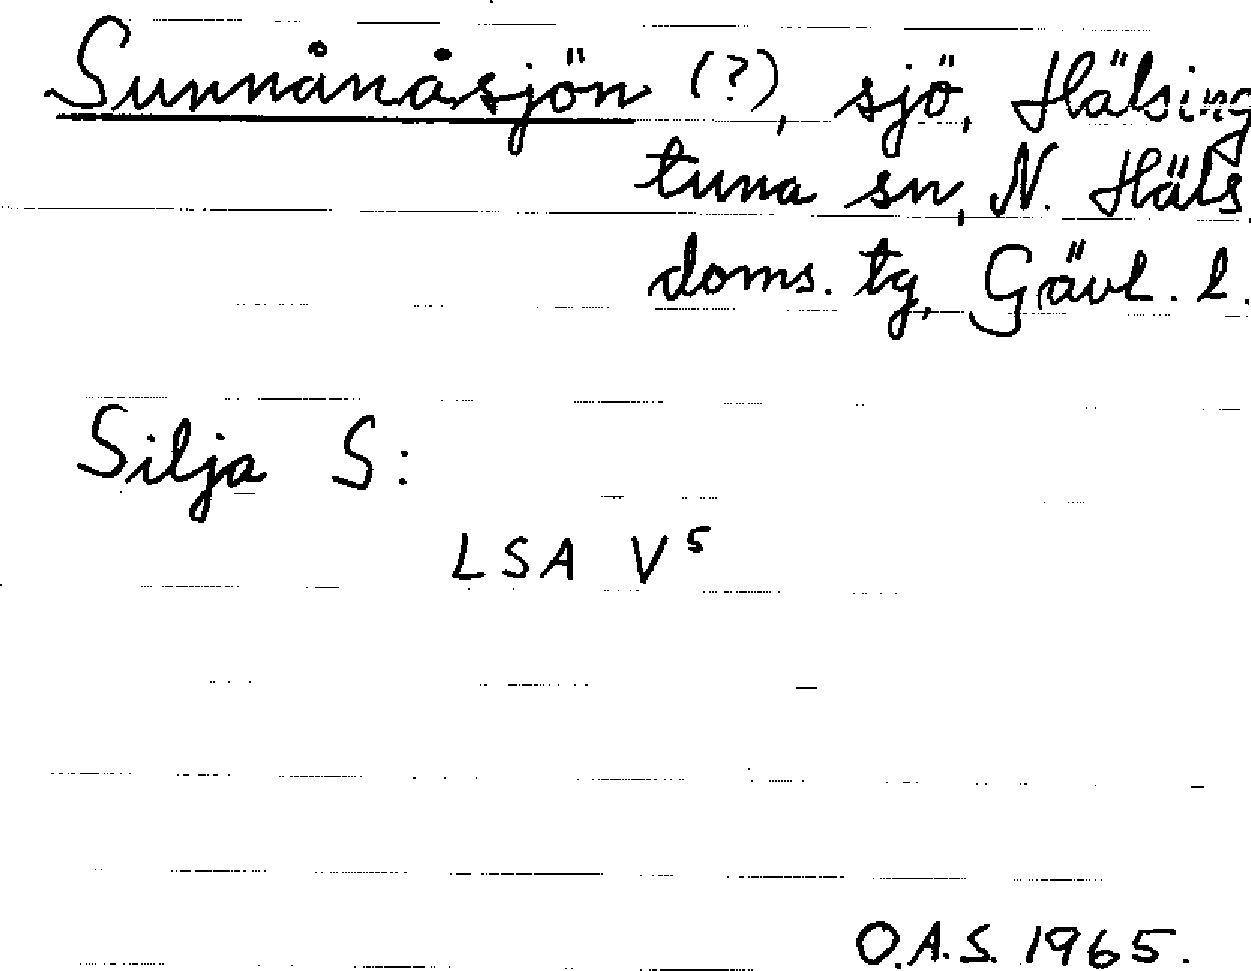 Sunnånåsjön (?), sjö, Hälsing
tuna sn, N. Häls.
doms. tg, Gävl. l.
Silja S:
LSA V⁵
O.A.S. 1965.